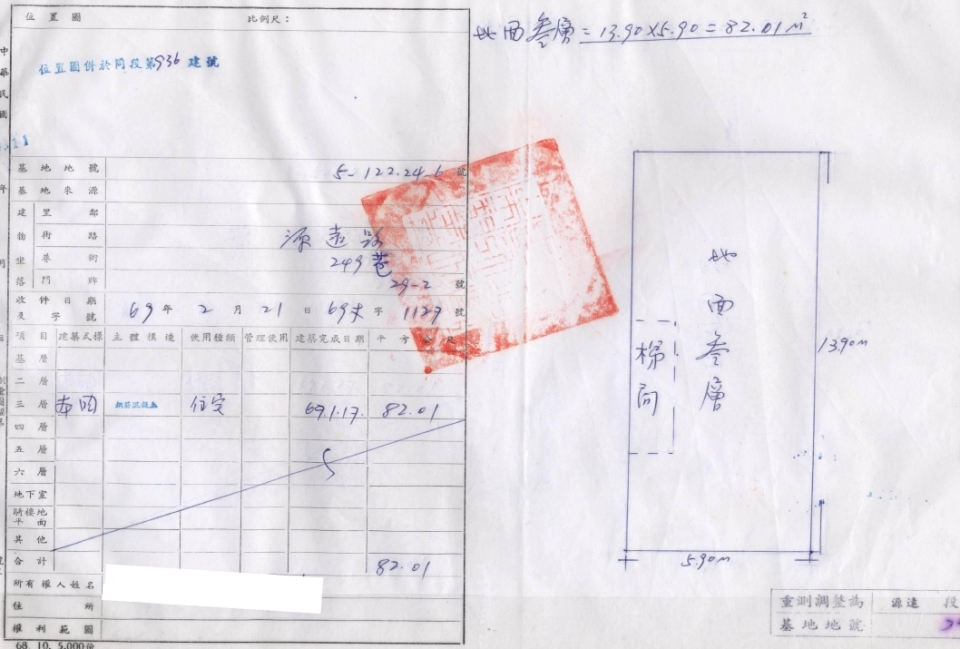 位置圖 比例尺：
位置圖併於同段第936建號
基地地號 5-122.24-6 號
基地來源
建 里 鄰
物 街路 源遠路
坐 巷街 249巷
落 門牌 29-2 號
收件日期及字號 69年2月21日 字1127號
項目 建築式樣 主體構造 使用種類 管理使用 建築完成日期 平方公尺
基層
二層
三層 本國 住宅 69.1.17. 82.01
四層
五層
六層
地下室
騎樓地平面
其他
合計 82.01
所有權人姓名
住所
權利範圍
68. 10. 5,000份
地面叁層=13.90×5.90=82.01m²
地面叁層
梯間
13.90m
5.90m
重測調整為 源遠 段
基地地號